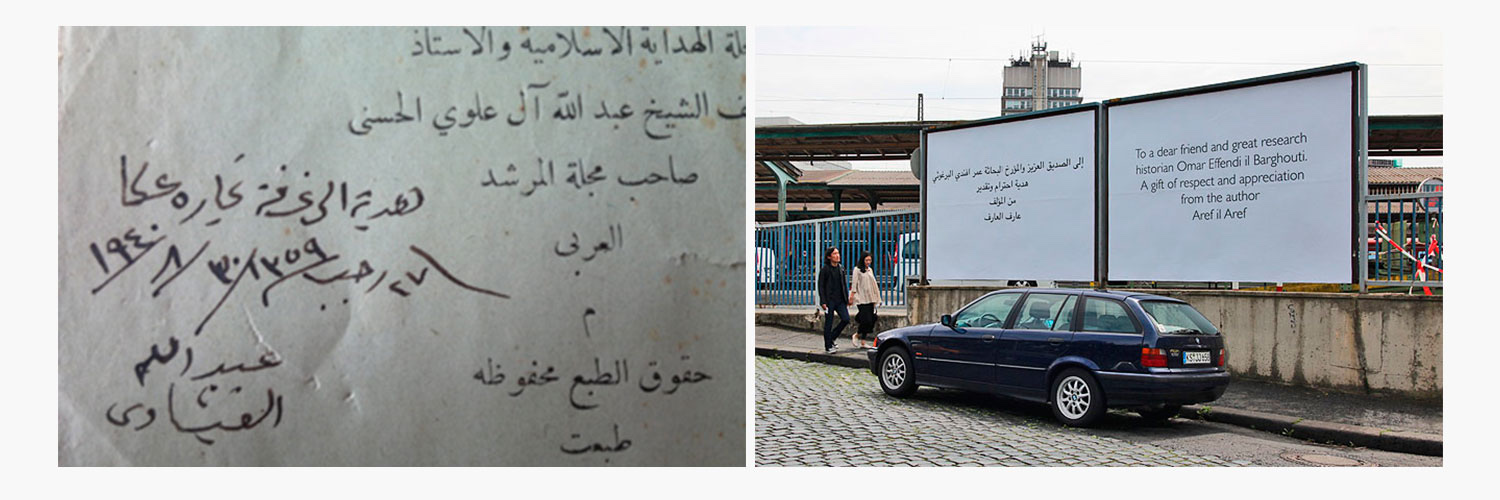 لة الهداية الاسلامية والاستاذ
ف الشيخ عبد الله آل علوي الحسنى
صاحب مجلة المرشد
العربى
م
حقوق الطبع محفوظه
طبعت
هدية الى غرفة تجاره عكا
٢٧ رجب ١٣٥٩ ٣٠/٨/١٩٤٠
عبد الله
إلى الصديق العزيز والمؤرخ البحاثة عمر افندي البرغوثي
هدية احترام وتقدير
من المؤلف
عارف العارف
To a dear friend and great research
historian Omar Effendi il Barghouti.
A gift of respect and appreciation
from the author
Aref il Aref